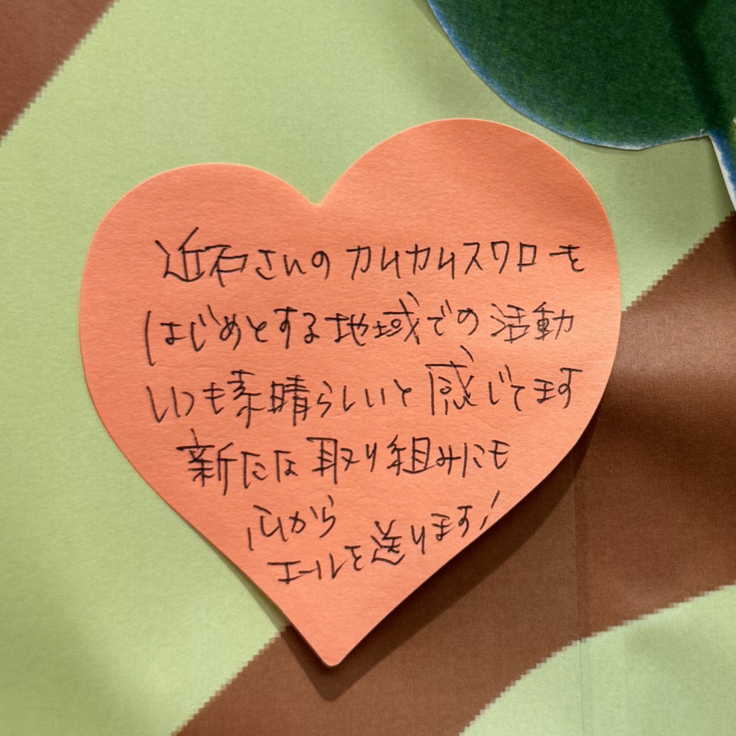 近石さんの カリカリスクロールを
はじめとする地域での活動
いつも素晴らしいと感じてます
新たな取り組みにも
心から
エールを送ります!